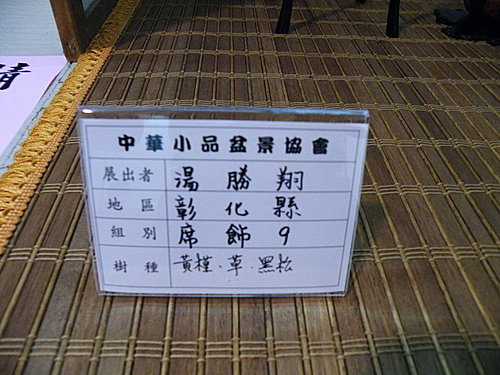 中華小品盆景協會
展出者 湯勝翔
地區 彰化縣
組別 席飾9
樹種 黃槿.草.黑松